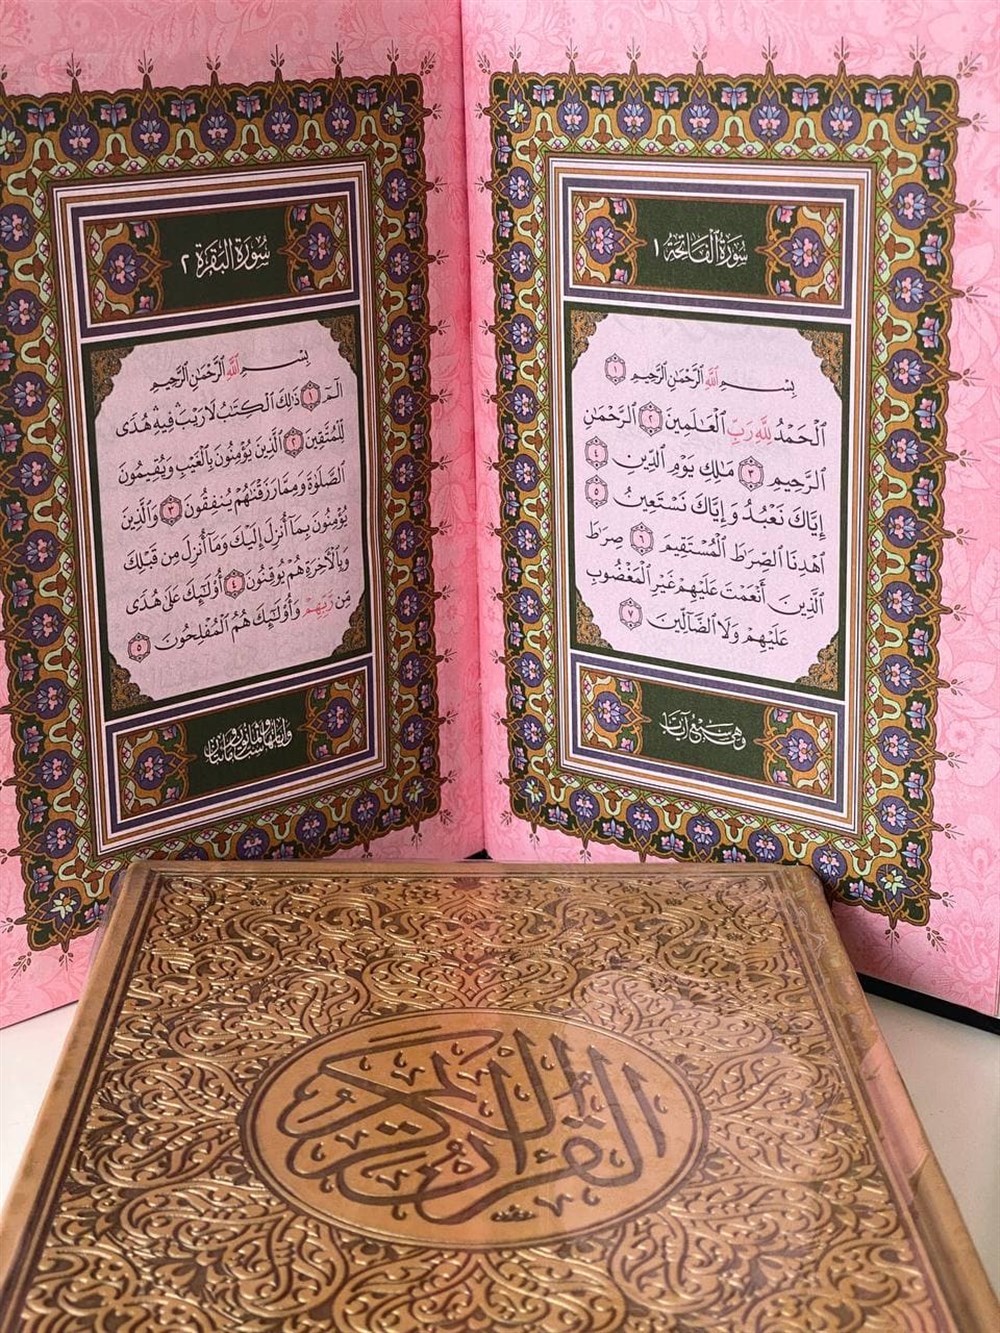 سُورَةُ الْفَاتِحَةِ ١
بِسْمِ اللَّهِ الرَّحْمَٰنِ الرَّحِيمِ ١
الْحَمْدُ لِلَّهِ رَبِّ الْعَٰلَمِينَ ٢ الرَّحْمَٰنِ
الرَّحِيمِ ٣ مَٰلِكِ يَوْمِ الدِّينِ ٤
إِيَّاكَ نَعْبُدُ وَإِيَّاكَ نَسْتَعِينُ ٥
اهْدِنَا الصِّرَٰطَ الْمُسْتَقِيمَ ٦ صِرَٰطَ
الَّذِينَ أَنْعَمْتَ عَلَيْهِمْ غَيْرِ الْمَغْضُوبِ
عَلَيْهِمْ وَلَا الضَّآلِّينَ ٧
وهي سبع آيات
سُورَةُ الْبَقَرَةِ ٢
بِسْمِ اللَّهِ الرَّحْمَٰنِ الرَّحِيمِ
الٓمٓ ١ ذَٰلِكَ الْكِتَٰبُ لَا رَيْبَ ۛ فِيهِ ۛ هُدًى
لِّلْمُتَّقِينَ ٢ الَّذِينَ يُؤْمِنُونَ بِالْغَيْبِ وَيُقِيمُونَ
الصَّلَوٰةَ وَمِمَّا رَزَقْنَٰهُمْ يُنفِقُونَ ٣ وَالَّذِينَ
يُؤْمِنُونَ بِمَآ أُنزِلَ إِلَيْكَ وَمَآ أُنزِلَ مِن قَبْلِكَ
وَبِالْءَاخِرَةِ هُمْ يُوقِنُونَ ٤ أُو۟لَٰٓئِكَ عَلَىٰ هُدًى
مِّن رَّبِّهِمْ وَأُو۟لَٰٓئِكَ هُمُ الْمُفْلِحُونَ ٥
وآياتها مائتان وست وثمانون
القرآن الكريم